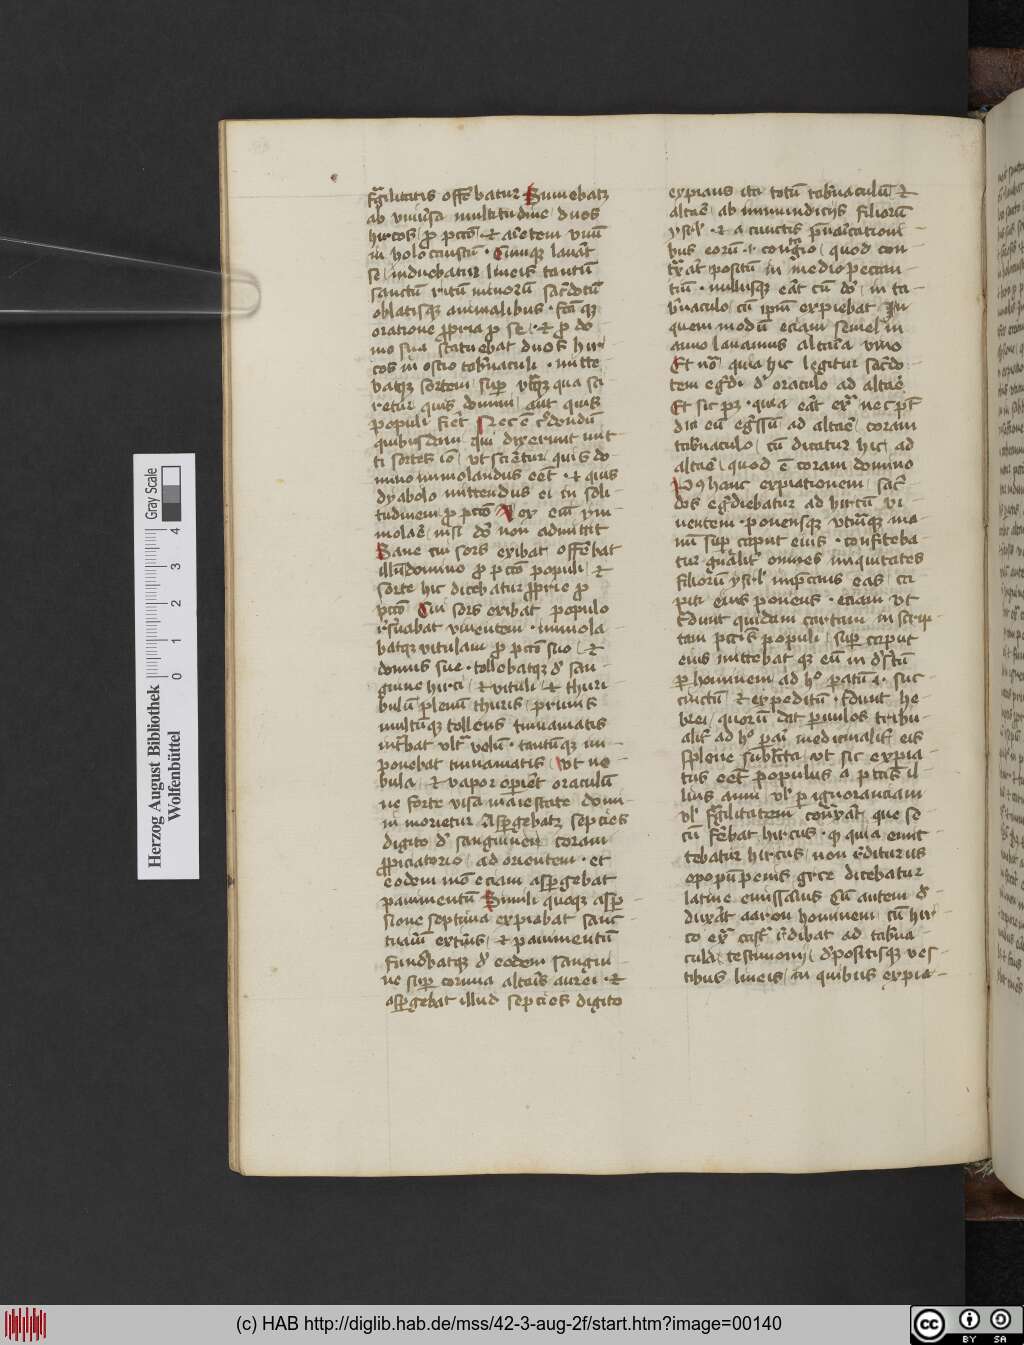 fragilitatis offerebatur Sumebatq
ab vniuersa multitudine duos
hircos pro peccato et arietem vnum
in holocaustum Cumque lauaret
se induebatur lineis tantum
sanctum ritum minorum sacerdotum
oblatisque animalibus facta quoque
oratione propria pro se et pro do
mo sua statuebat duos hir
cos in ostio tabernaculi mitte
batque sortem super vtrumque qua sci
retur quis domini aut quis
populi fieret Nec est credendum
quibusdam qui dixerunt mit
ti sortes vt sciretur quis do
mino immolandus esset et quis
dyabolo mittendus ei in soli
tudinem pro peccato
molare nisi deo non admittit
Sane cui sors exibat offerebat
illum domino pro peccato populi et
sorte hic dicebatur proprie pro
peccato Cui sors exibat populo
reseruabat viuentem immola
batque vitulum pro peccato suo et
domus sue tollebatque de san
guine hirci et vituli et thuri
bulum plenum thuris prunis
multumque tollens timiamatis
intrabat vltra velum tantumque im
ponebat timiamatis vt ne
bula et vapor operiret oraculum
ne forte visa maiestate domi
ni moriretur Aspergebatque septies
digito de sanguine coram
propiciatorio ad orientem et
eodem modo eciam aspergebat
pauimentum Simili quoque asper
sione septima expiabat sanc
tuarium exterius et pauimentum
fundebatque de eodem sangui
ne super cornua altaris aurei et
aspergebat illud septies digito
expians ita totum tabernaculum et
altare ab immundicijs filiorum
ysrael et a cunctis preuaricationi
bus eorum et contagio quod con
traxerat positum in medio peccan
tium nullusque erat cum eo in ta
bernaculo cum ipsum expiebat In
quem modum eciam semel in
anno lauamus altaria vino
Et nota quia hic legitur sacerdo
tem egredi de oraculo ad altare
Et sic patet quia erat extra nec potest
dici eum egressum ad altare coram
tabernaculo cum dicatur hic ad
altare quod est coram domino
Post hanc expiationem sacer
dos egrediebatur ad hircum vi
uentem ponensque vtramque ma
num super caput eius confiteba
tur generaliter omnes iniquitates
filiorum ysrael imprecans eas ca
piti eius ponens eciam vt
tradunt quidam cartam in scrip
tam peccatis populi super caput
eius mittebat que eum in desertum
per hominem ad hoc paratum i suc
cinctum et expeditum tradunt he
brei quorum dant paruulos tribu
aliter ad hoc parari medicinaliter eis
splene subtracta vt sic expia
tus esset populus a peccatis il
lius anni vel per ignoranciam
vel fragilitatem contraxerat que se
cum ferebat hircus quod quia emit
tebatur hircus non rediturus
epopumpenis grece dicebatur
latine emissarius Cum autem e
duxerat aaron hominem cum hir
co extra castra redibat ad taberna
cula testimonij depositisque ves
tibus lineis in quibus expia
Herzog August Bibliothek
Wolfenbüttel
0 1 2 3 4
Gray Scale
(c) HAB http://diglib.hab.de/mss/42-3-aug-2f/start.htm?image=00140
cc BY SA